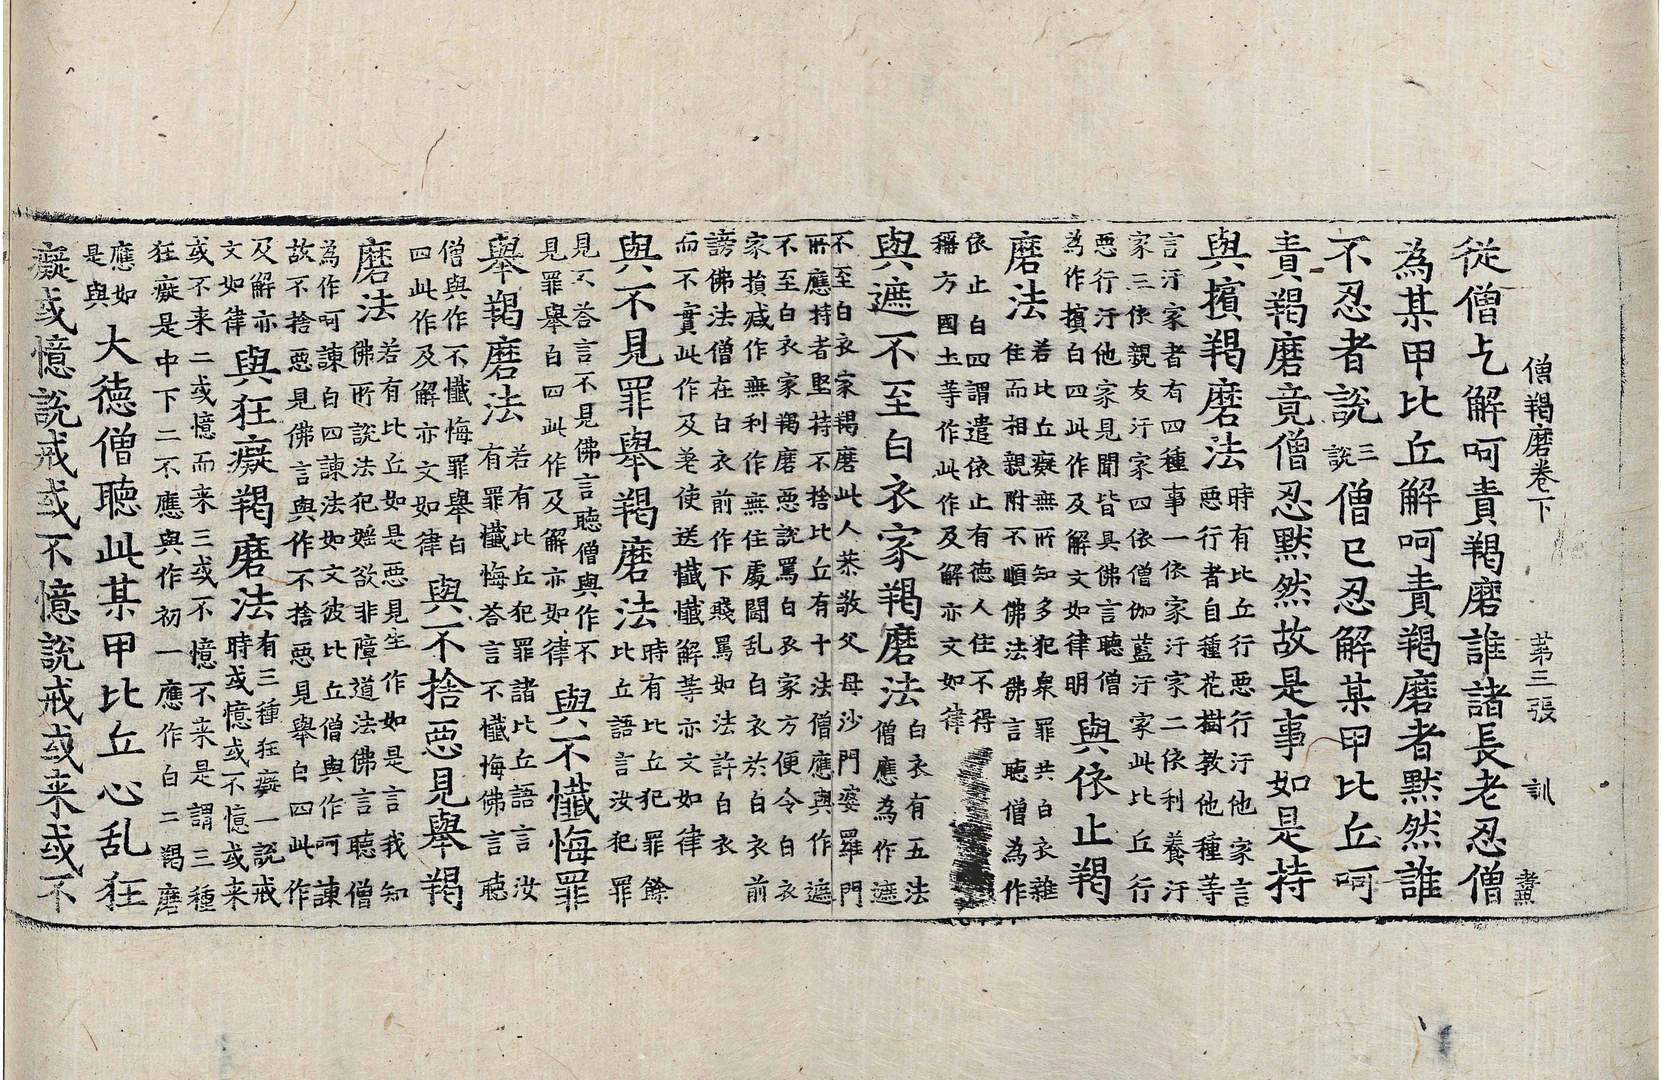 僧羯磨卷下　第三張　訓
從僧乞解呵責羯磨誰諸長老忍僧
為某甲比丘解呵責羯磨者黙然誰
不忍者說三說僧已忍解某甲比丘呵
責羯磨竟僧忍黙然故是事如是持
與擯羯磨法時有比丘行惡行汙他家言
惡行者自種花樹教他種等
言汙家者有四種事一依家汙家二依利養汙
家三依親友汙家四依僧伽藍汙家此比丘行
惡行汙他家見聞皆具佛言聽僧
為作擯白四此作及解文如律明與依止羯
磨法若比丘癡無所知多犯衆罪共白衣雜
住而相親附不順佛法佛言聽僧為作
依止白四謂遣依止有德人住不得
稱方國土等作此作及解亦文如律
與遮不至白衣家羯磨法白衣有五法
僧應為作遮
不至白衣家羯磨此人恭敬父母沙門婆羅門
所應持者堅持不捨比丘有十法僧應與作遮
不至白衣家羯磨惡說罵白衣家方便令白衣
家損減作無利作無住處鬪乱白衣於白衣前
謗佛法僧在白衣前作下賤罵如法許白衣
而不實此作及差使送懺懺解等亦文如律
與不見罪舉羯磨法時有比丘犯罪餘
比丘語言汝犯罪
見不荅言不見佛言聽僧與作不
見罪舉白四此作及解亦如律與不懺悔罪
舉羯磨法若有比丘犯罪諸比丘語言汝
有罪懺悔荅言不懺悔佛言聽
僧與作不懺悔罪舉白
四此作及解亦文如律與不捨惡見舉羯
磨法若有比丘如是惡見生作如是言我知
佛所說法犯婬欲非障道法佛言聽僧
為作呵諫白四諫法如文彼比丘僧與作呵諫
故不捨惡見佛言與作不捨惡見舉白四此作
及解亦
文如律與狂癡羯磨法有三種狂癡一說戒
時或憶或不憶或来
或不来二或憶而来三或不憶不来是謂三種
狂癡是中下二不應與作初一應作白二羯磨
應如
是與大德僧聽此某甲比丘心乱狂
癡或憶說戒或不憶說戒或来或不